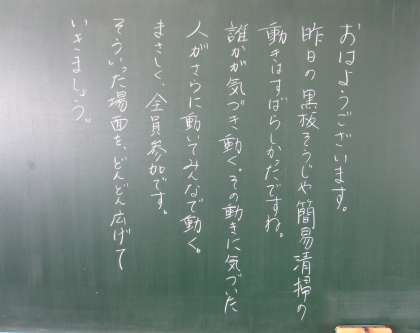 おはようございます。
昨日の黒板そうじや簡易清掃の
動きはすばらしかたですね。
誰かが気づき動く。その動きに気づいた
人がさらに動いてみんなで動く。
まさしく、全員参加です。
そういった場面を、どんどん広げて
いきましょう。